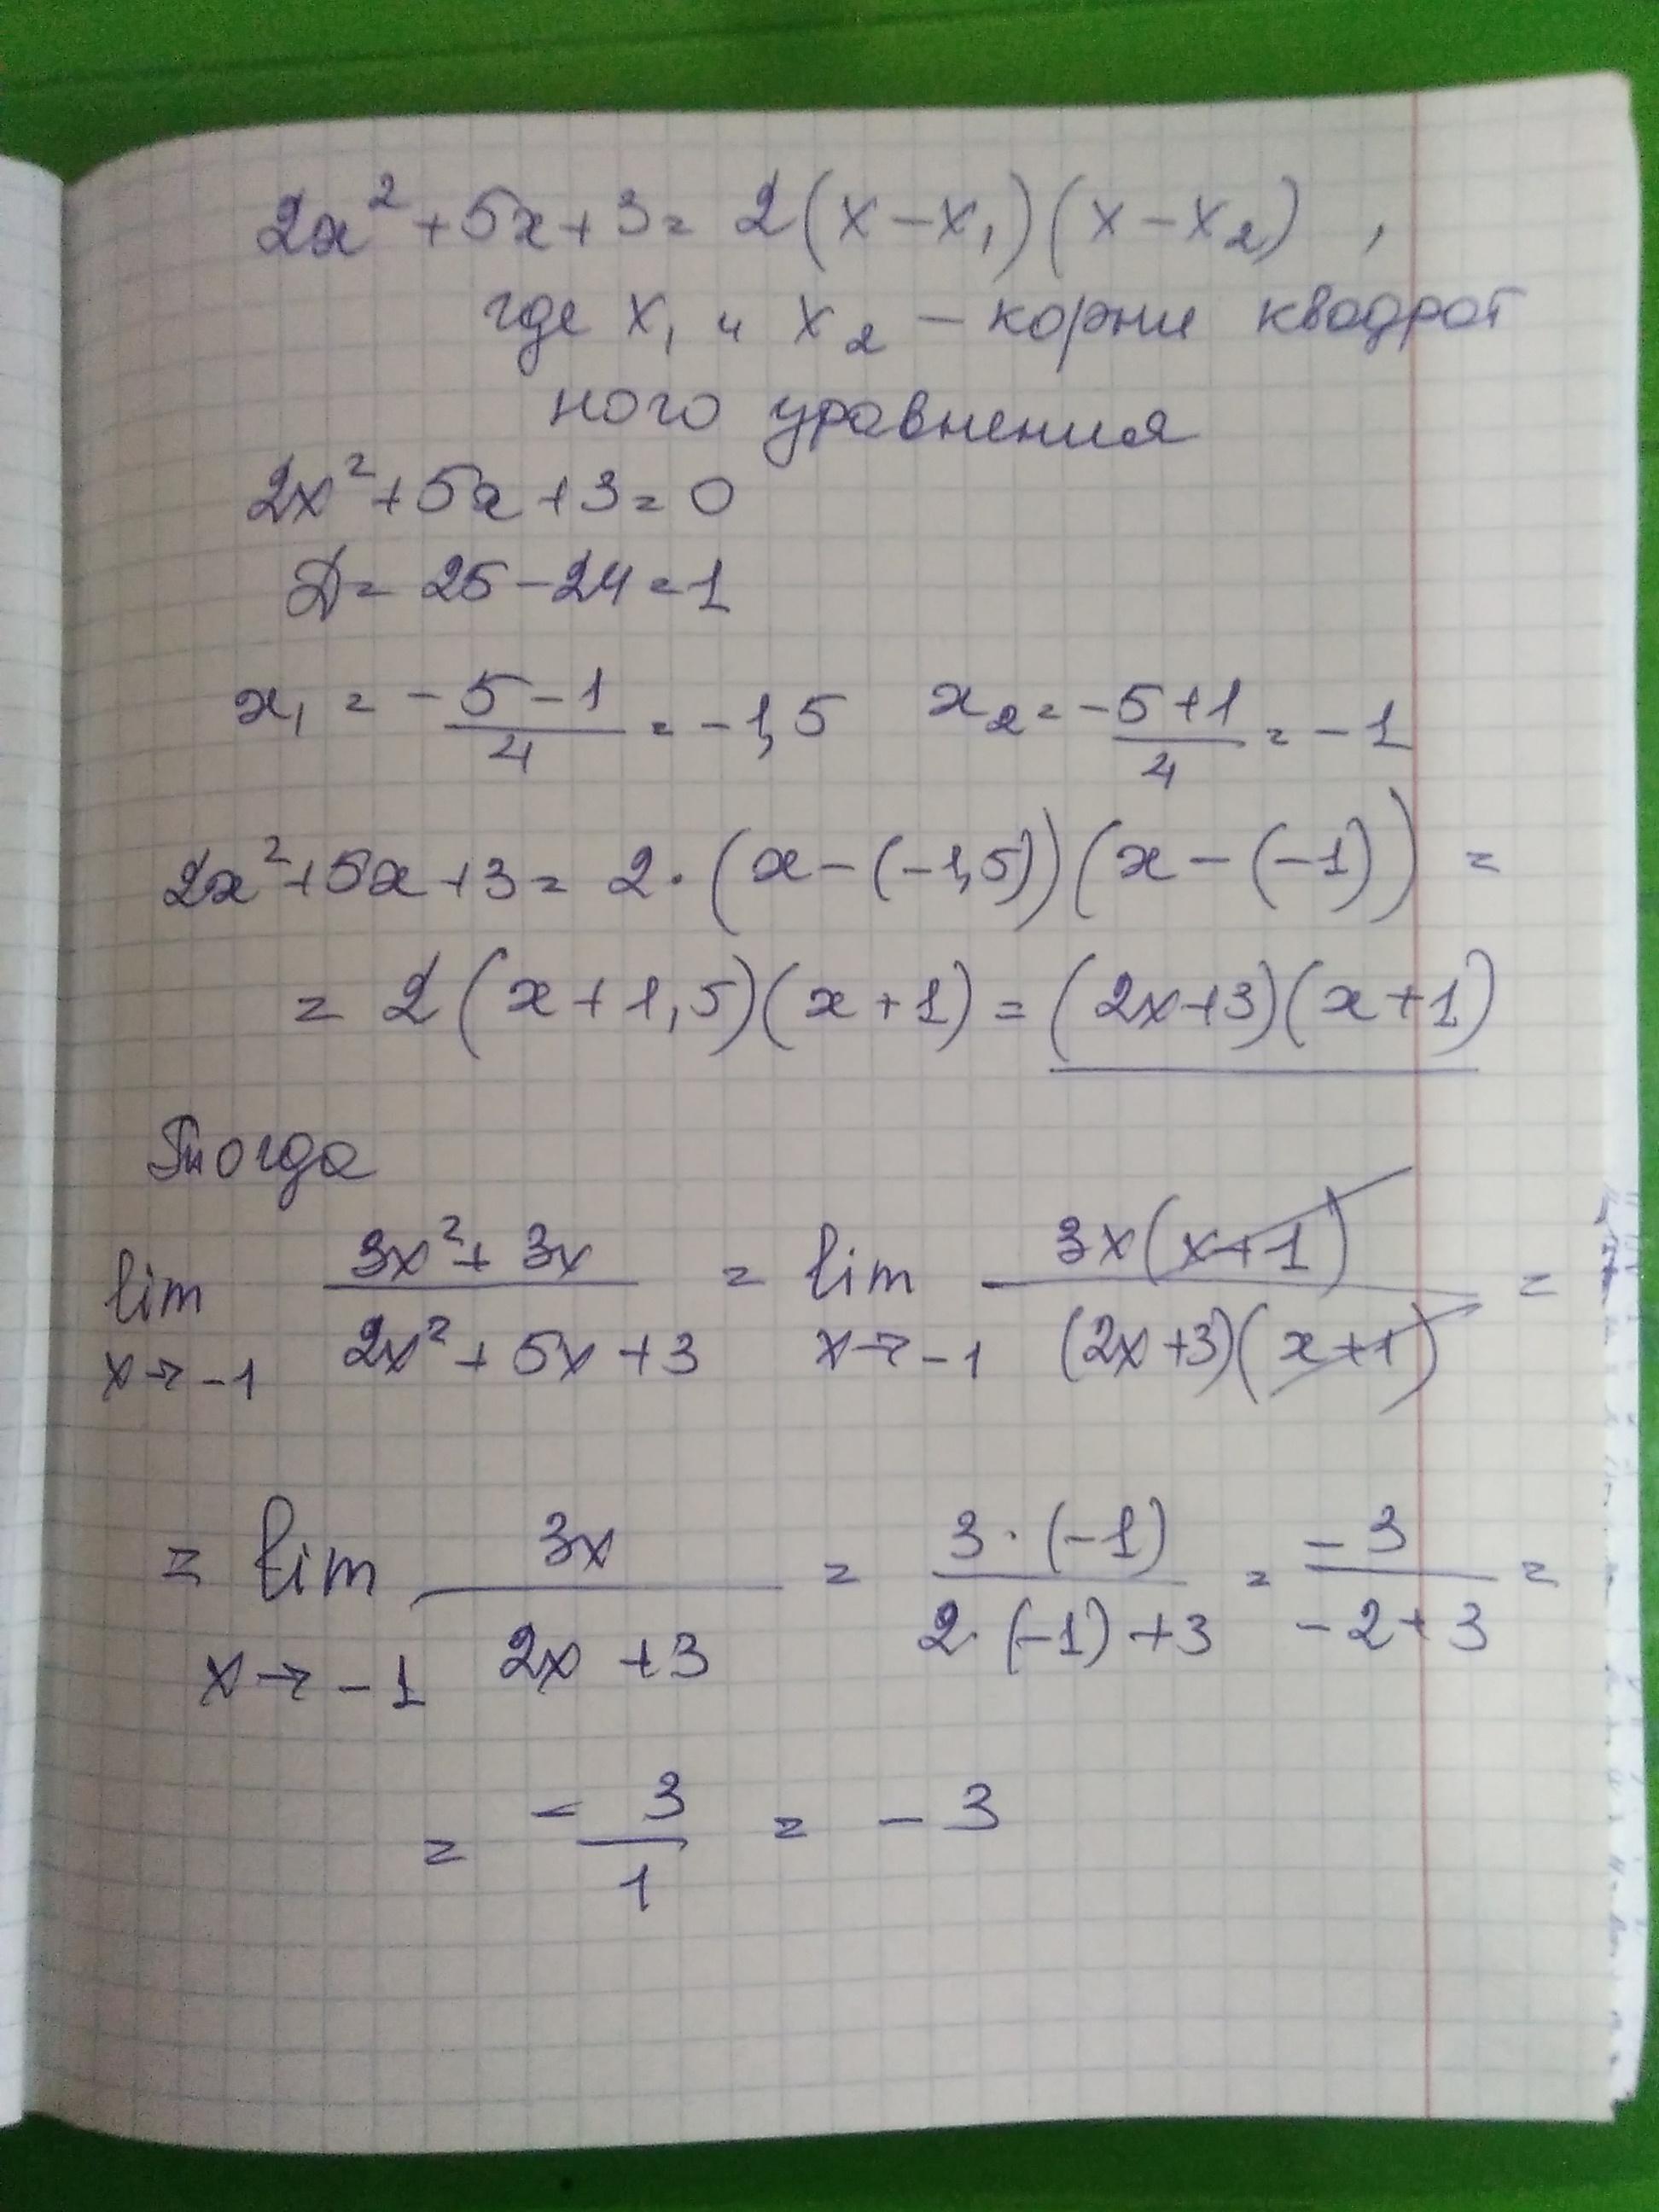 2x² + 5x + 3 = 2(x - x₁)(x - x₂) ,
где x₁ и x₂ - корни квадрат
ного уравнения
2x² + 5x + 3 = 0
D = 25 - 24 = 1
x₁ = \frac{-5 - 1}{4} = -1,5 x₂ = \frac{-5 + 1}{4} = -1
2x² + 5x + 3 = 2 · (x - (-1,5))(x - (-1)) =
= 2(x + 1,5)(x + 1) = (2x + 3)(x + 1)
Тогда
lim_{x→-1} \frac{3x² + 3x}{2x² + 5x + 3} = lim_{x→-1} \frac{3x(x + 1)}{(2x + 3)(x + 1)} =
= lim_{x→-1} \frac{3x}{2x + 3} = \frac{3 · (-1)}{2 · (-1) + 3} = \frac{-3}{-2 + 3} =
= \frac{-3}{1} = -3